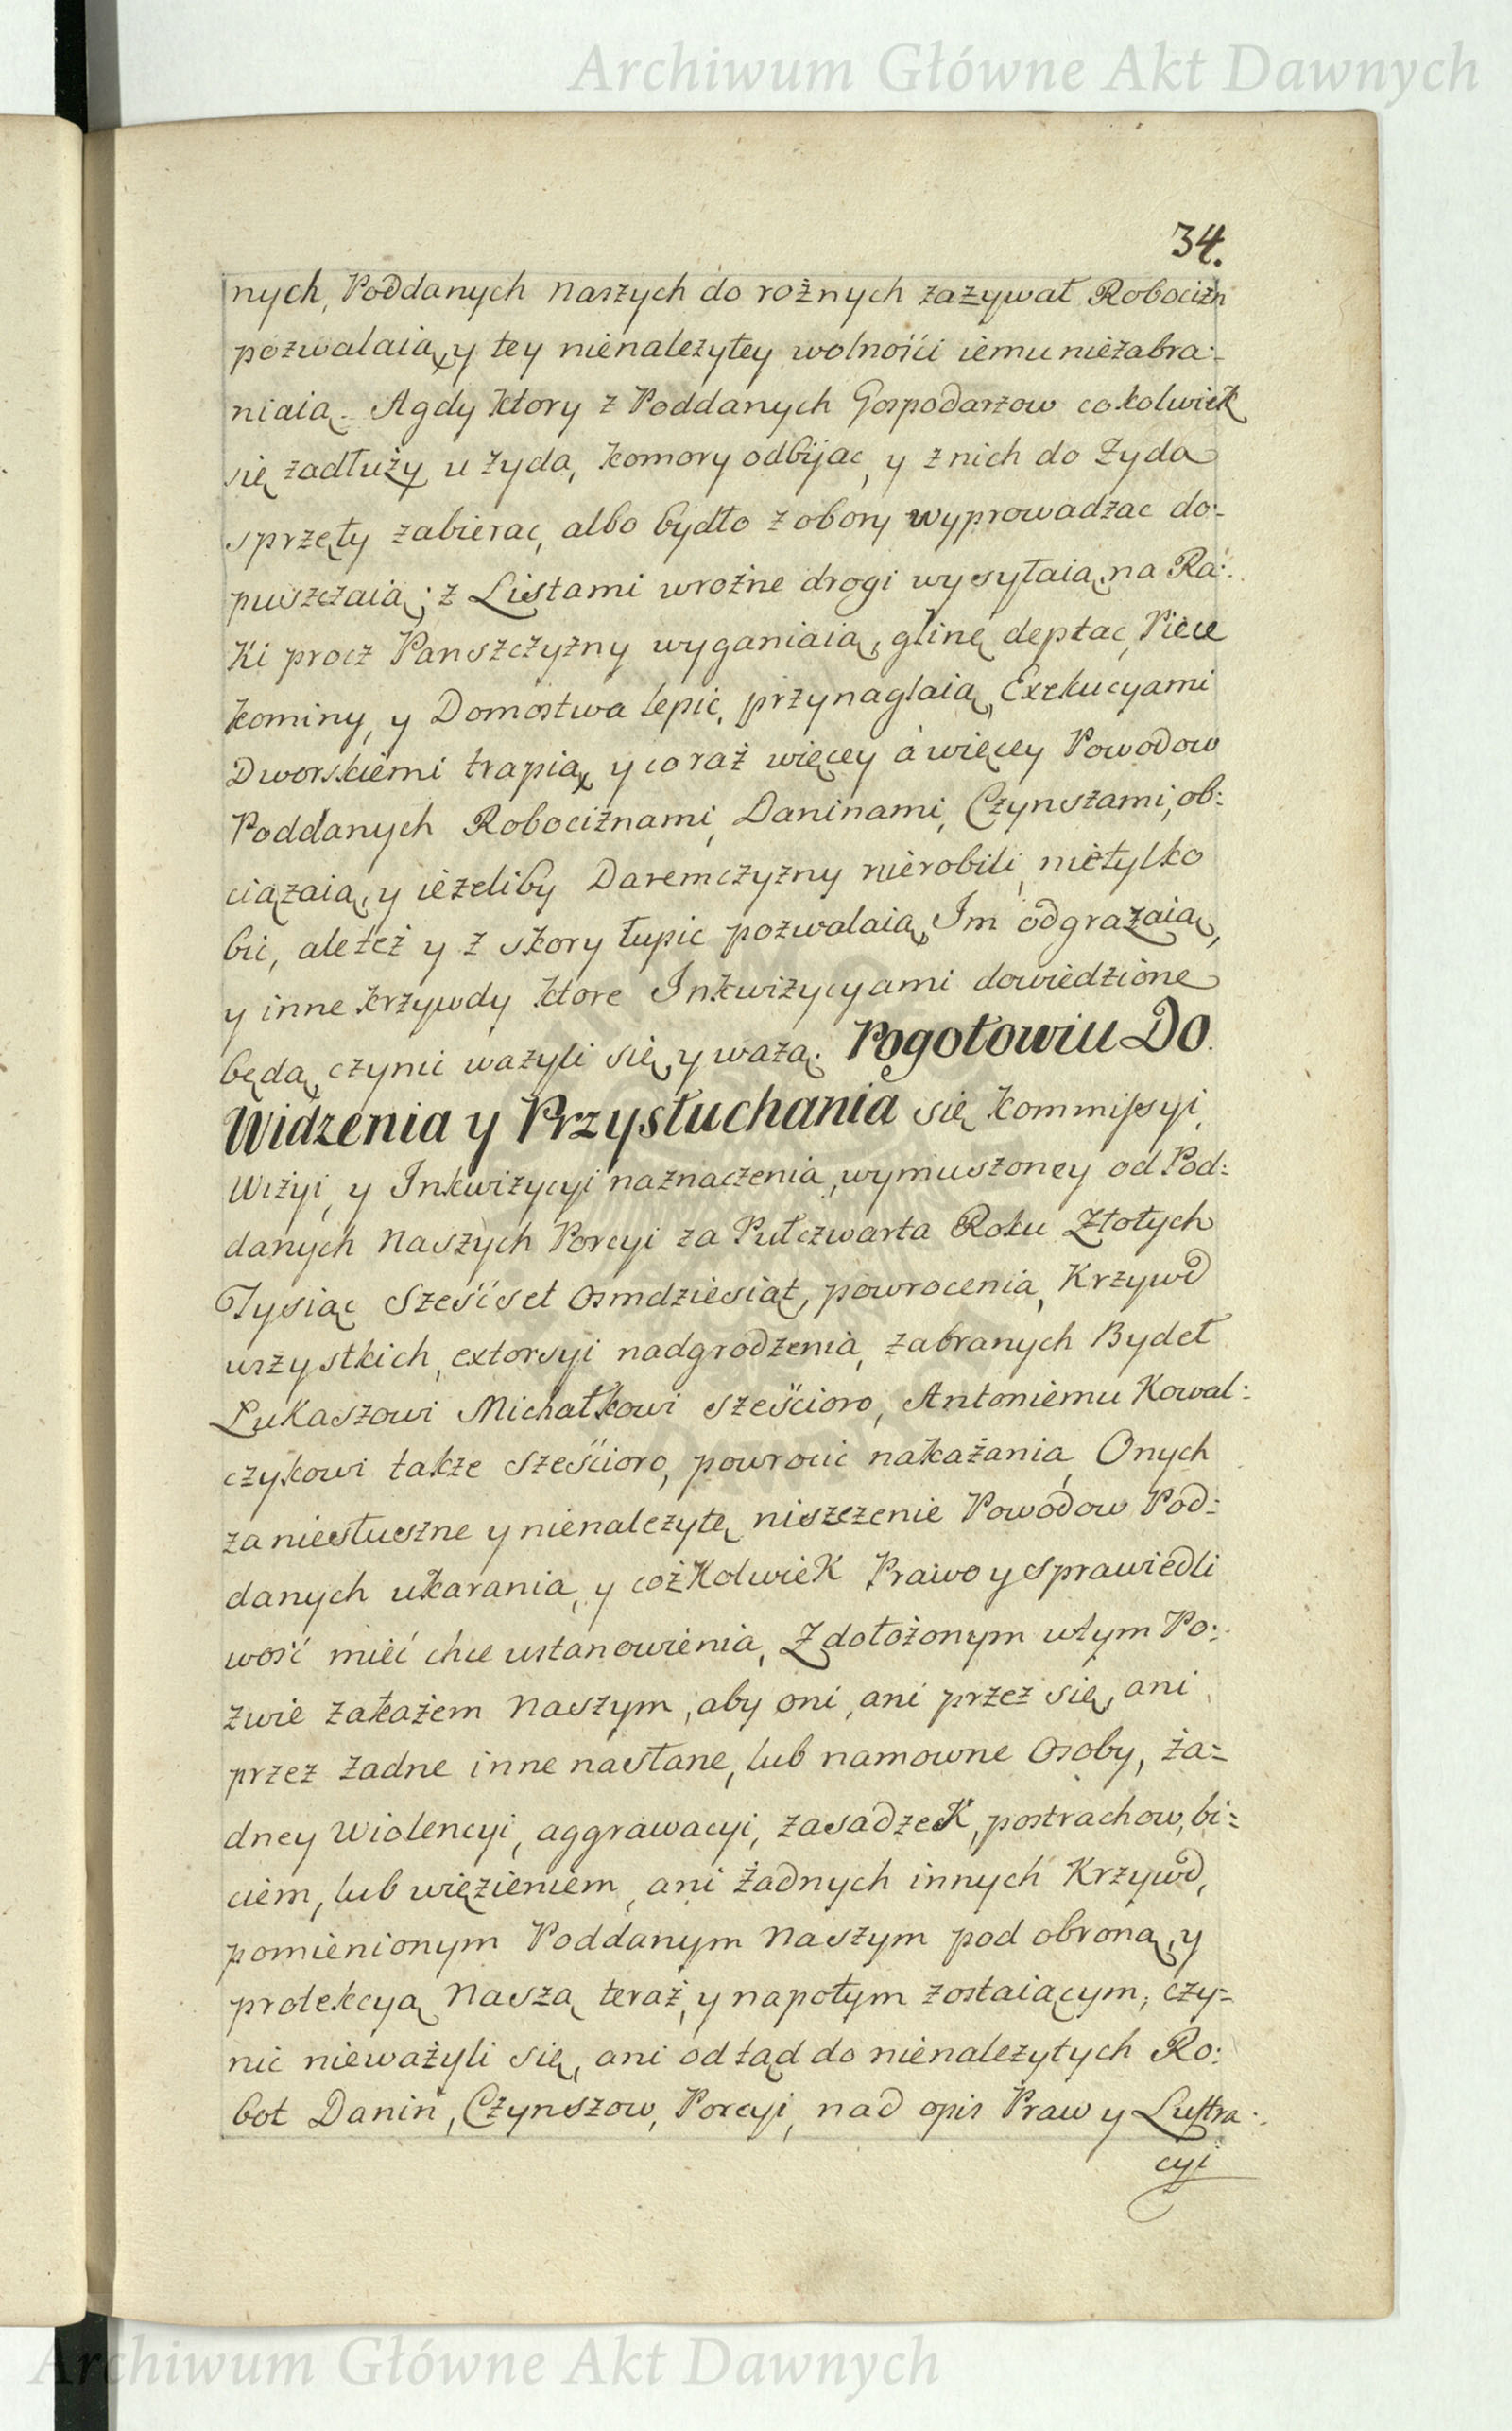 Archiwum Główne Akt Dawnych
34.
nych, Poddanych Naszych do rożnych zazywał Robocizn
pozwalaią, y tey nienalezytey wolności iemu niezabra:
niaią. Agdy ktory z Poddanych Gospodarzow cokolwiek
się zadłuży u Zyda, komory odbijac, y z nich do Zyda
sprzęty zabierac, albo bydło z obory wyprowadzac do:
puszczaią; z Listami wrożne drogi wysyłaią, na Ra:
ki procz Panszczyzny wyganiaią, glinę deptac, Piece
kominy, y Domostwa lepic, przynaglaią, Exekucyami
Dworskiemi trapią, y coraż więcey á więcey Powodow
Poddanych Robociznami, Daninami, Czynszami, ob:
ciązaią, y ieżeliby Daremczyzny nierobili, nietylko
bic, ale też y z skory łupic pozwalaią, Im odgrazaią,
y inne krzywdy ktore Inkwizycyami dowiedzione
będą, czynic wazyli się, y ważą. Pogotowiu Do
Widzenia y Przysłuchania się Kommissyi,
Wizyi, y Inkwizycyi naznaczenia, wymuszoney od Pod:
danych Naszych Porcyi za Pułczwarta Roku Złotych
Tysiąc Sześćset Osmdziesiąt, powrocenia, Krzywd
wszystkich, extorsyi nadgrodzenia, zabranych Bydeł
Łukaszowi Michałkowi sześcioro, Antoniemu Kowal:
czykowi także sześcioro, powrocic nakażania, Onych
za niesłuszne y nienalezytę niszczenie Powodow Pod:
danych ukarania, y cożkolwiek Prawo y sprawiedli
wość mieć chce ustanowienia, Z dołożonym wtym Po:
zwie zakażem Naszym, aby oni, ani przez się, ani
przez żadne inne nasłane, lub namowne Osoby, ża=
dney Wiolencyi, aggrawacyi, zasadzek, postrachow, bi=
ciem, lub więzieniem, ani żadnych innych Krzywd,
pomienionym Poddanym Naszym pod obroną, y
protekcyą Naszą teraż, y napotym zostaiącym, czy=
nic nieważyli się, ani odtąd do nienalezytych Ro:
bot Danin, Czynszow, Porcyi, nad opis Praw y Lustra:
cyi
Archiwum Główne Akt Dawnych